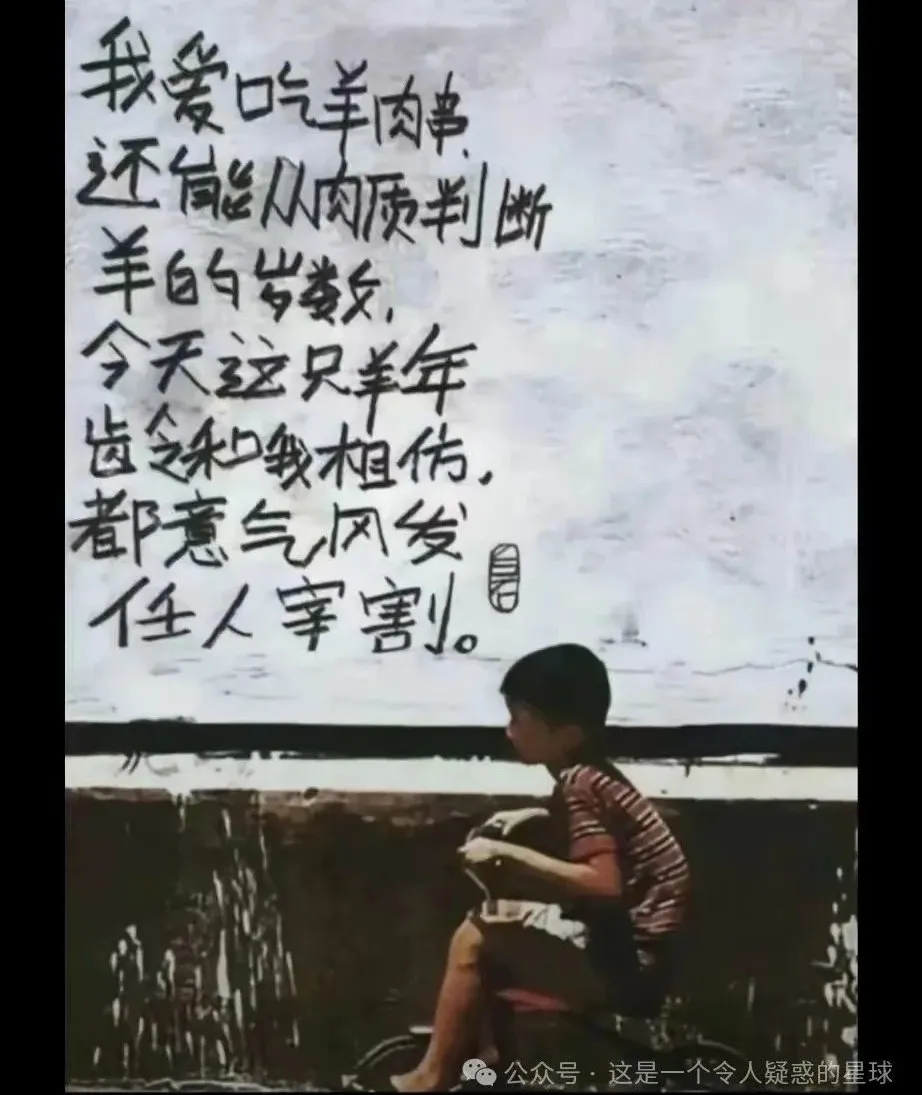 我爱吃羊肉串,
还能从肉质判断
羊的岁数,
今天这只羊年
龄和我相仿,
都意气风发
任人宰割。
公众号·这是一个令人疑惑的星球